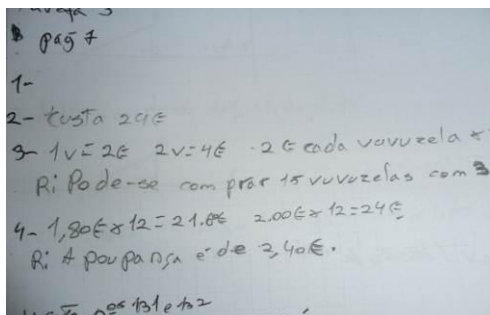 pág 7
1-
2- Custa 24€
3- 1v=2€ 2v=4€ 2€ cada vuvuzela
R: Pode-se comprar 15 vuvuzelas com 3
4- 1,80€×12=21.6€ 2.00€×12=24€
R: A poupança é de 2,40€.
nos 131 e 132